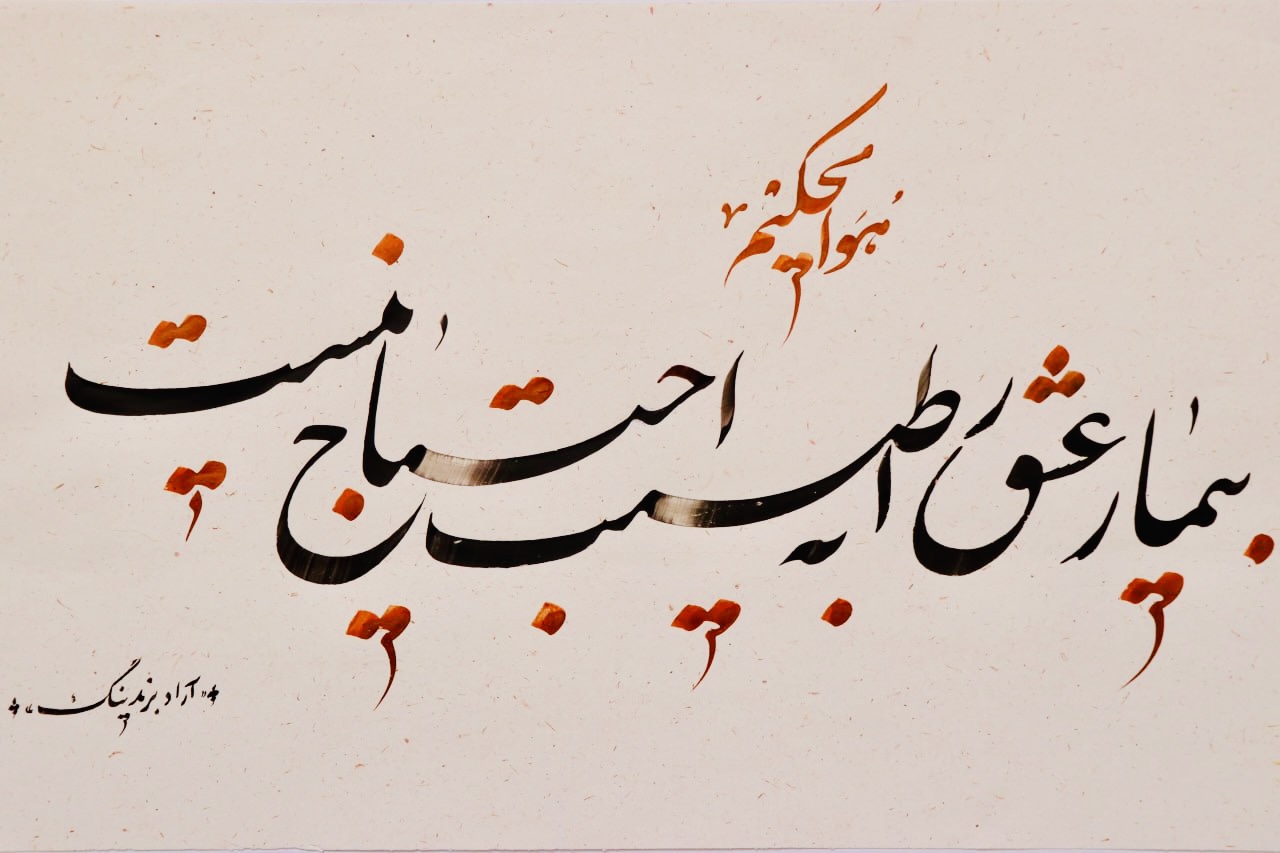 هُوَالحکیم
بیمار عشق را به طبیب احتیاج نیست
«آراد برندینگ»